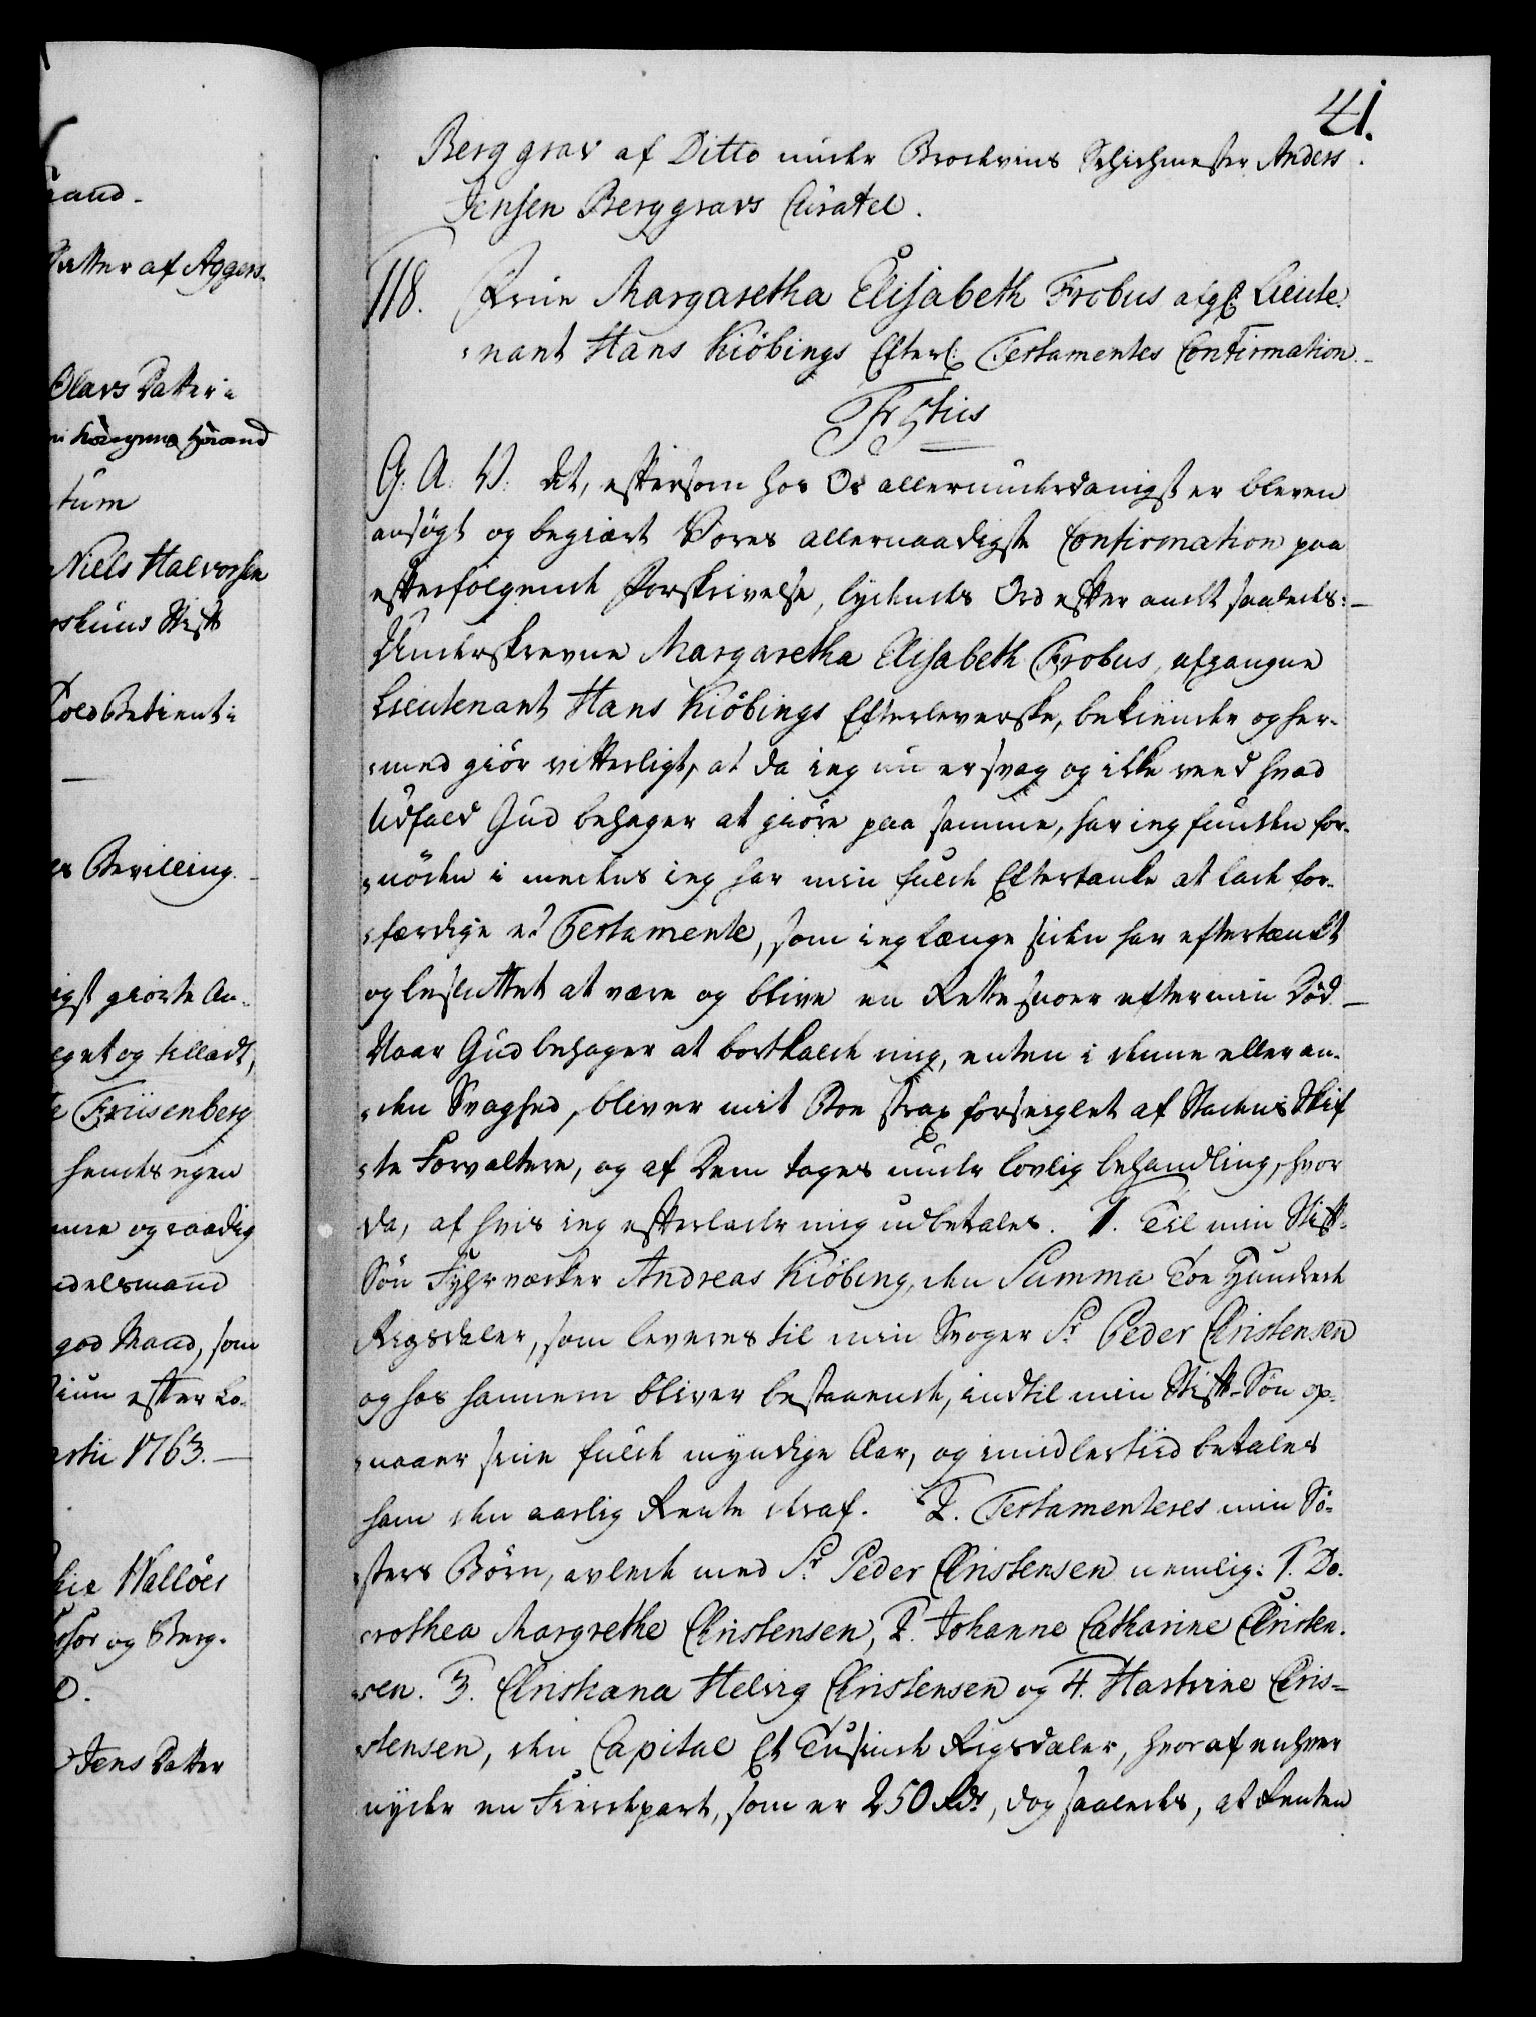 41.
Berggrav af Ditto under Broderens Schichmester Anders
Jensen Berggravs Curatel.
118. Frue Margaretha Elisabeth Frobus afg: Lieute-
nant Hans Kiöbings Efterl: Testamentes Confirmation.
Fr 5tius
G: A: V: At, eftersom hos Os allerunderdanigst er bleven
ansøgt og begiært Vores allernaadigste Confirmation paa
efterfølgende Forskrivelse, lydendes Ord efter andet saaledes:
Underskrevne Margaretha Elisabeth Frobus, afgangne
Lieutenant Hans Kiöbings Efterleverske, bekiender og her-
med giør vitterligt, at da ieg nu er svag og ikke veed hvad
Udfald Gud behager at giøre paa samme, har ieg funden for-
nøden i medens ieg har min fulde Eftertanke at lade for-
færdige et Testamente, som ieg længe siden har eftertænkt
og besluttet at være og blive en Rettesnoer efter min Död
Naar Gud behager at bortkalde mig, enten i denne eller an-
den Svaghed, bliver mit Boe strax forseiglet af Stædens Skif
te Forvaltere, og af Dem tages under lovlig behandling, hvor
da, af hvis ieg efterlader mig udbetales. 1. Til min Stif-
Søn Fyhrværker Andreas Kiöbing, den Summa Toe Hundrede
Rigsdaler, som leveres til min Svoger Sr Peder Christensen
og hos hannem bliver bestaaende, indtil min Stif-Søn op-
naaer sine fulde myndige Aar, og imidlertiid betales
ham den aarlig Rente deraf. 2. Testamenteres min Sö-
sters Børn, avlede med Sr Peder Christensen nemlig: 1. Do-
rothea Margrethe Christensen, 2. Johanne Catharine Christen-
sen. 3. Christiana Helvig Christensen og 4. Hartvine Chris-
stensen, den Capital Et Tusinde Rigsdaler, hvoraf enhver
nyder en Fierdepart, som er 250 Rdr, dog saaledes, at Renten
aand.
Datter af Aggers-
Olavs Datter i
tum
Niels Halvorsen
rshuus Stift
Told Betient i
es Bevilling.
igst giorte An-
get og tilladt,
Friisenberg
hendes egen
og raadig
delsmand
god Mand, som
efter Lo-
artii 1763.
Walløes
og Berg-
Jens Datter